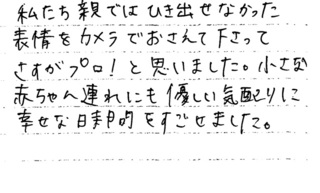 私たち親ではひき出せなかった
表情をカメラでおさえて下さって
さすがプロ!と思いました。小さな
赤ちゃん連れにも優しい気配りに
幸せな時間をすごせました。